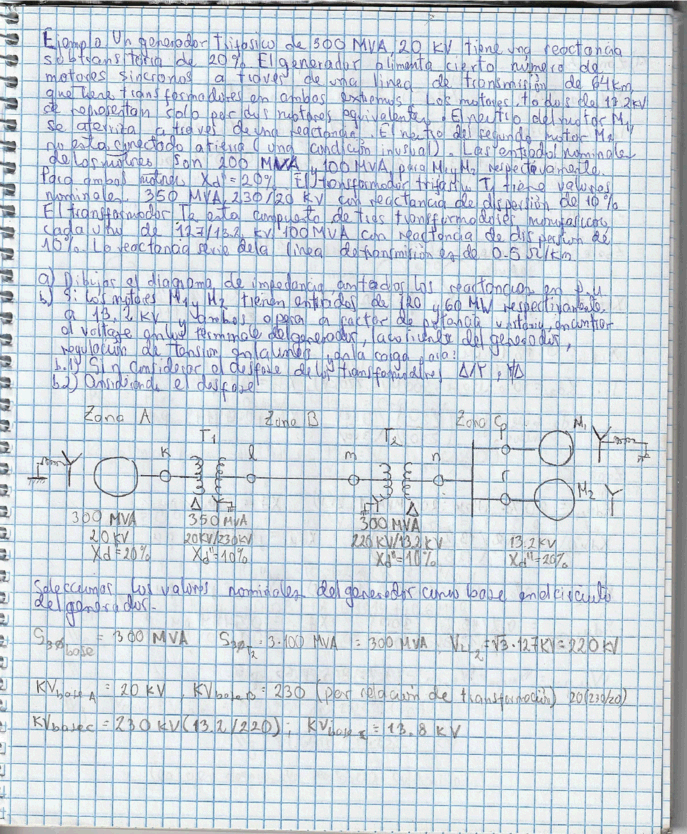 Ejemplo Un generador trifasico de 300 MVA, 20 KV tiene una reactancia
subtransitoria de 20%. El generador alimenta cierto número de
motores sincronos a través de una linea de transmisión de 64 km,
que tiene transformadores en ambos extremos. Los motores, todos de 13.2 kV
se representan solo por dos motores equivalentes. El neutro del motor M1
se aterriza a traves de una reactancia. El neutro del segundo motor M2
no esta conectado a tierra (una condición inusual). Las entradas nominales
de los motores son 200 MVA y 100 MVA, para M1 y M2 respectivamente.
Para ambos motores Xd" = 20%. El transformador trifasico T1 tiene valores
nominales 350 MVA, 230/20 KV con reactancia de dispersión de 10%
El transformador T2 esta compuesto de tres transformadores monofasicos
cada uno de 127/13.2 KV, 100 MVA con reactancia de dispersion de
10%. La reactancia serie de la linea de transmision es de 0.5 Ω/Km
a) Dibujar el diagrama de impedancia, con todas las reactancias en p.u
b) Si los motores M1 y M2 tienen entradas de 120 y 60 MW respectivamente
a 13.2 KV y ambos opera a factor de potencia unitario, encontrar
el voltage en las terminales del generador, la corriente del generador,
regulación de tension en la linea y en la carga para:
b.1) Sin considerar el desfase de los transformadores Δ/Y, Y/Δ
b.2) Considerando el desfase
Zona A Zona B Zona C
T1 T2 M1
K l m n p
r M2
Δ Y Y Δ
300 MVA 350 MVA 300 MVA
20 KV 20KV/230KV 220 KV/13.2 KV 13.2 KV
Xd = 20% Xd" = 10% Xd" = 10% Xd" = 20%
Seleccionamos los valores nominales del generador como base en el circuito
del generador.
S3ø base = 300 MVA S3øT2 = 3·100 MVA = 300 MVA, VLL2 = √3·127KV = 220 KV
KVbase A = 20 KV, KVbase B = 230 (por relación de transformación) 20(230/20)
KVbase C = 230 KV (13.2/220); KVbase C = 13.8 KV